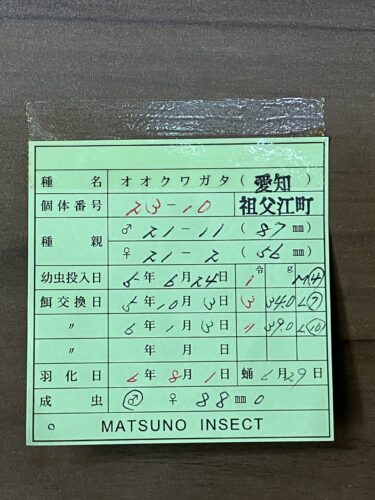 種名 オオクワガタ (愛知
個体番号 23-10 祖父江町
種親 ♂ 21-11 (87 mm)
♀ 21-2 (56 mm)
幼虫投入日 5年 6月 24日 令 1 g M(4)
餌交換日 5年 10月 13日 3 34.0 L(7)
〃 6年 1月 13日 〃 39.0 L(10)
〃 年 月 日
羽化日 6年 8月 1日 蛹 6月 29日
成虫 ♂ ♀ 88 mm 0
MATSUNO INSECT